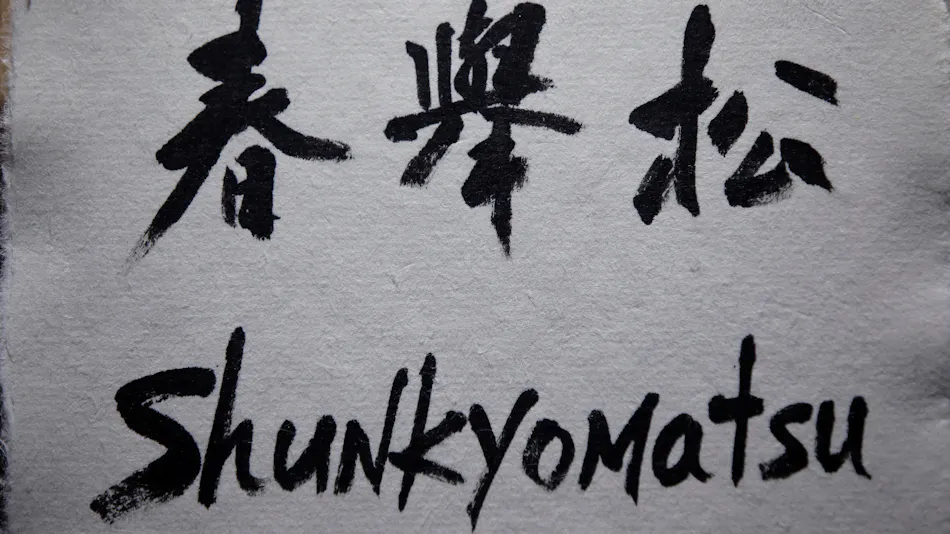 春舉松
Shunkyomatsu